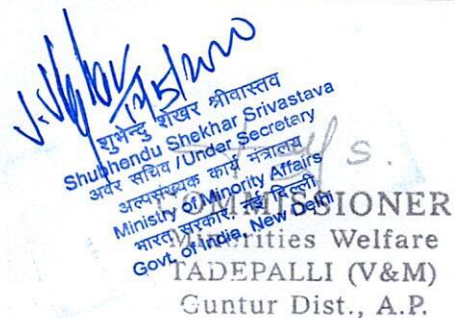 शुभेन्दु शेखर श्रीवास्तव
Shubhendu Shekhar Srivastava
अवर सचिव /Under Secretary
अल्पसंख्यक कार्य मंत्रालय
Ministry of Minority Affairs
भारत सरकार, नई दिल्ली
Govt. of India, New Delhi
COMMISSIONER
Minorities Welfare
TADEPALLI (V&M)
Guntur Dist., A.P.